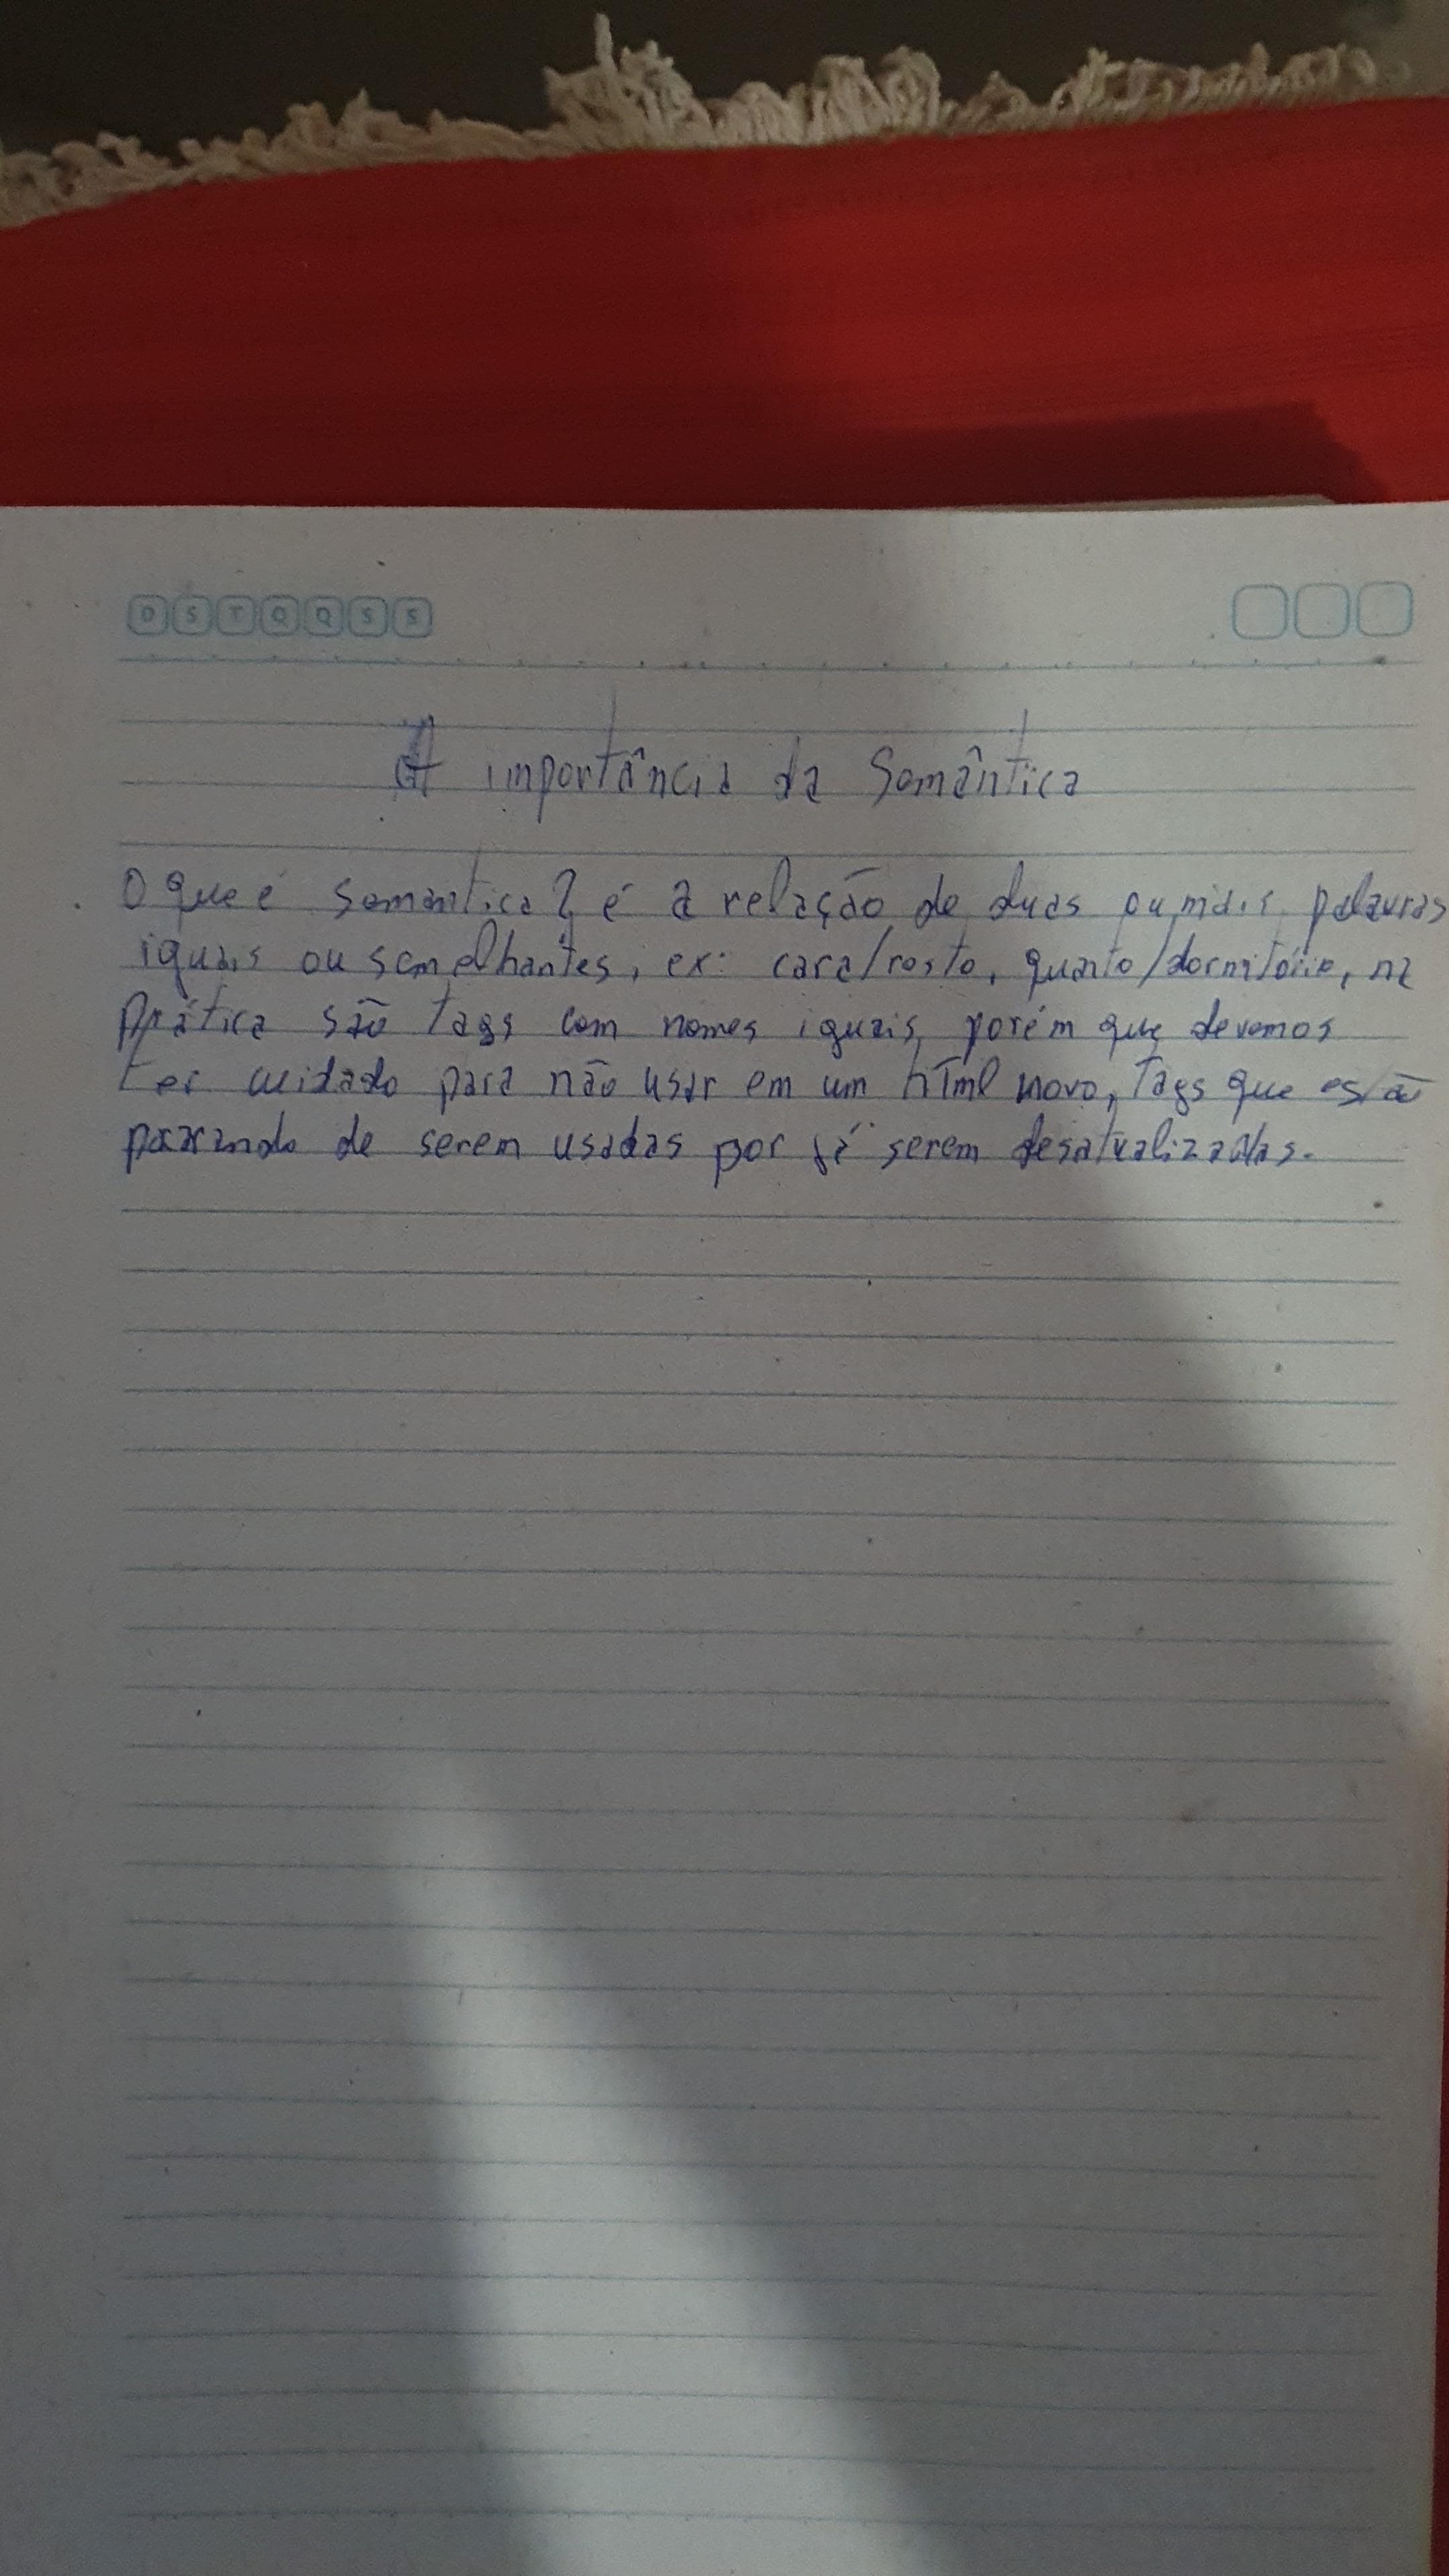 D S T Q Q S S
A importância da Semântica
O que é semantica? é a relação de duas ou mais palavras
iguais ou semelhantes, ex: cara/rosto, quarto/dormitório, na
prática são tags com nomes iguais, porém que devemos
ter cuidado para não usar em um html novo, Tags que estão
parando de serem usadas por já serem desatualizadas.